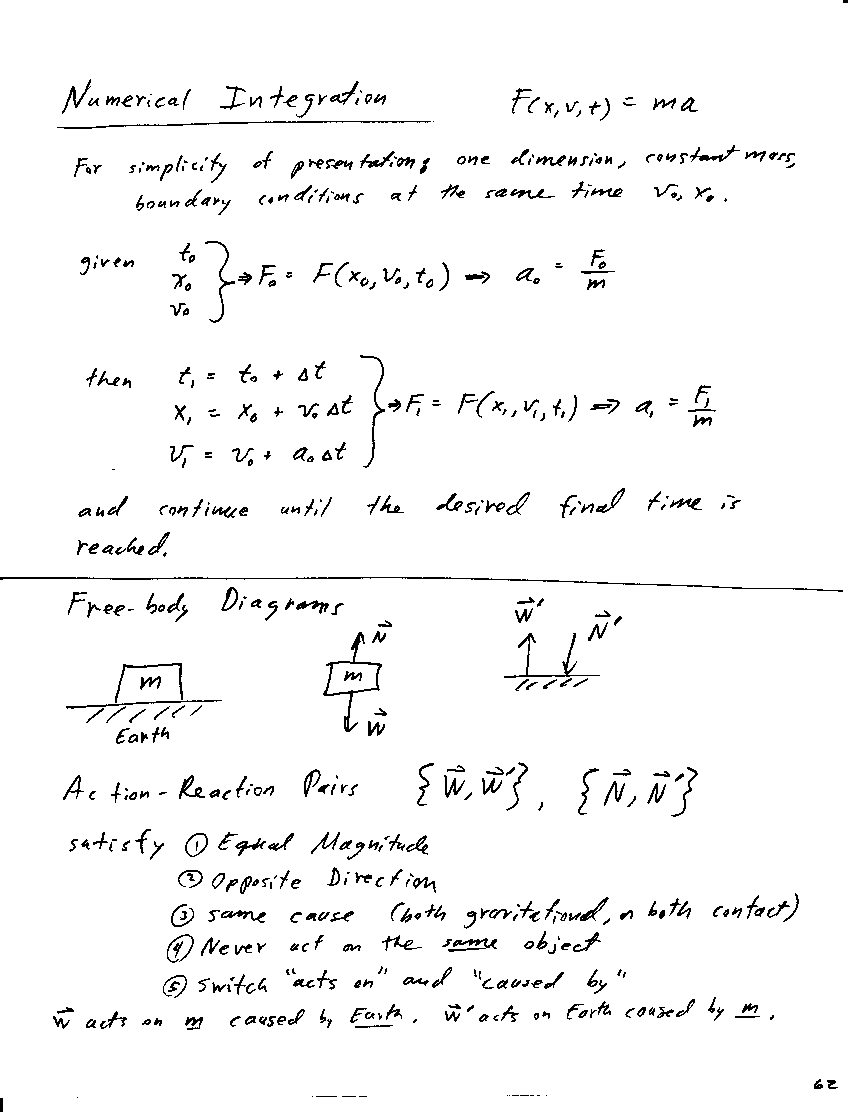 Numerical Integration F(x,v,t) = ma
For simplicity of presentation; one dimension, constant mass,
boundary conditions at the same time v₀, x₀.
given t₀
x₀ } ⇒ F₀ = F(x₀, v₀, t₀) ⇒ a₀ = F₀/m
v₀
then t₁ = t₀ + Δt
x₁ = x₀ + v₀ Δt } ⇒ F₁ = F(x₁, v₁, t₁) ⇒ a₁ = F₁/m
v₁ = v₀ + a₀ Δt
and continue until the desired final time is
reached.
Free-body Diagrams
m
Earth
N⃗
m
W⃗
W⃗' N⃗'
Action-Reaction Pairs {W⃗, W⃗'}, {N⃗, N⃗'}
satisfy ① Equal Magnitude
② Opposite Direction
③ same cause (both gravitational, or both contact)
④ Never act on the same object
⑤ switch "acts on" and "caused by"
W⃗ acts on m caused by Earth. W⃗' acts on Earth caused by m.
62